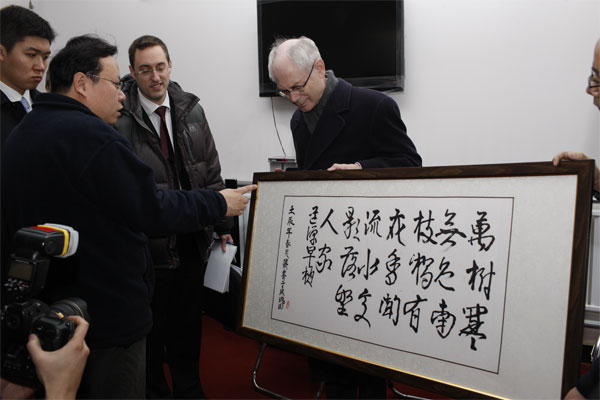 萬樹寒
無色南
枝獨有
花香聞
流水處
影落野
人家
道源早梅
壬辰年春